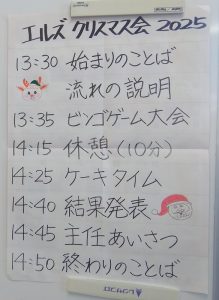 エルズ クリスマス会 2025
13:30 始まりのことば
流れの説明
13:35 ビンゴゲーム大会
14:15 休憩(10分)
14:25 ケーキタイム
14:40 結果発表
14:45 主任あいさつ
14:50 終わりのことば